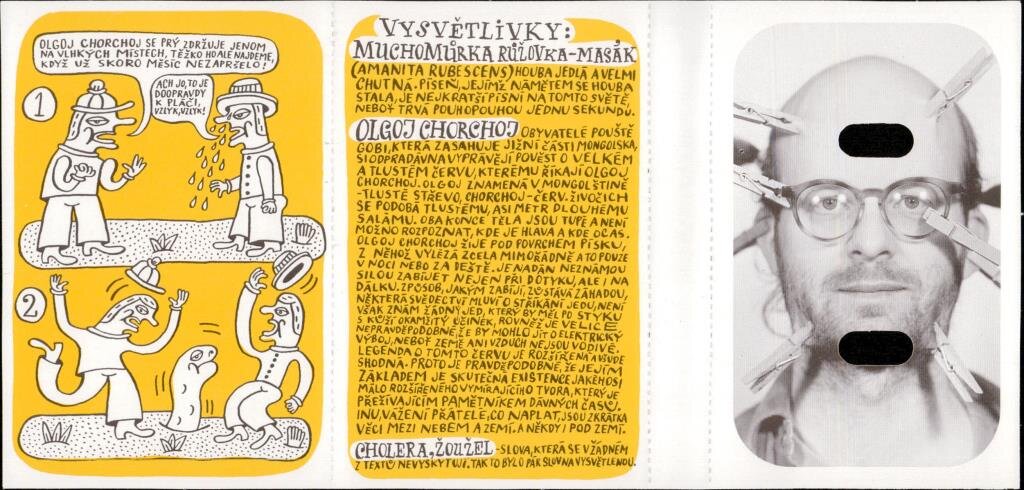 OLGOJ CHORCHOJ SE PRÝ ZDRŽUJE JENOM
NA VLHKÝCH MÍSTECH, TĚŽKO HO ALE NAJDEME,
KDYŽ UŽ SKORO MĚSÍC NEZAPRŠELO!
ACH JO, TO JE
DOOPRAVDY
K PLÁČI,
VZLYK, VZLYK!
1
2
VYSVĚTLIVKY:
MUCHOMŮRKA RŮŽOVKA-MASÁK
(AMANITA RUBESCENS) HOUBA JEDLÁ A VELMI
CHUTNÁ. PÍSEŇ, JEJÍMŽ NÁMĚTEM SE HOUBA
STALA, JE NEJKRATŠÍ PÍSNÍ NA TOMTO SVĚTĚ,
NEBOŤ TRVÁ POUHOPOUHOU JEDNU SEKUNDU.
OLGOJ CHORCHOJ OBYVATELÉ POUŠTĚ
GOBI, KTERÁ ZASAHUJE JIŽNÍ ČÁSTI MONGOLSKA,
SI ODPRADÁVNA VYPRÁVĚJÍ POVĚST O VELKÉM
A TLUSTÉM ČERVU, KTERÉMU ŘÍKAJÍ OLGOJ
CHORCHOJ. OLGOJ ZNAMENÁ V MONGOLŠTINĚ
-TLUSTÉ STŘEVO, CHORCHOJ-ČERV. ŽIVOČICH
SE PODOBÁ TLUSTÉMU, ASI METR DLOUHÉMU
SALÁMU. OBA KONCE TĚLA JSOU TUPÉ A NENÍ
MOŽNO ROZPOZNAT, KDE JE HLAVA A KDE OCAS.
OLGOJ CHORCHOJ ŽIJE POD POVRCHEM PÍSKU,
Z NĚHOŽ VYLÉZÁ ZCELA MIMOŘÁDNĚ A TO POUZE
V NOCI NEBO ZA DEŠTĚ. JE NADÁN NEZNÁMOU
SILOU ZABÍJET NEJEN PŘI DOTYKU, ALE I NA
DÁLKU. ZPŮSOB, JAKÝM ZABÍJÍ, ZŮSTÁVÁ ZÁHADOU,
NĚKTERÁ SVĚDECTVÍ MLUVÍ O STŘÍKÁNÍ JEDU, NENÍ
VŠAK ZNÁM ŽÁDNÝ JED, KTERÝ BY MĚL PO STYKU
S KŮŽÍ OKAMŽITÝ ÚČINEK, ROVNĚŽ JE VELICE
NEPRAVDĚPODOBNÉ, ŽE BY MOHLO JÍT O ELEKTRICKÝ
VÝBOJ, NEBOŤ ZEMĚ ANI VZDUCH NEJSOU VODIVÉ.
LEGENDA O TOMTO ČERVU JE ROZŠÍŘENA A VŠUDE
SHODNÁ. PROTO JE PRAVDĚPODOBNÉ, ŽE JEJÍM
ZÁKLADEM JE SKUTEČNÁ EXISTENCE JAKÉHOSI
MÁLO ROZŠÍŘENÉHO VYMÍRAJÍCÍHO TVORA, KTERÝ JE
PŘEŽÍVAJÍCÍM PAMĚTNÍKEM DÁVNÝCH ČASŮ.
INU, VÁŽENÍ PŘÁTELÉ, CO NAPLAT, JSOU ZKRÁTKA
VĚCI MEZI NEBEM A ZEMÍ. A NĚKDY I POD ZEMÍ.
CHOLERA, ŽOUŽEL-SLOVA, KTERÁ SE V ŽÁDNÉM
Z TEXTŮ NEVYSKYTUJÍ. TAK TO BYLO PÁR SLOV NA VYSVĚTLENOU.